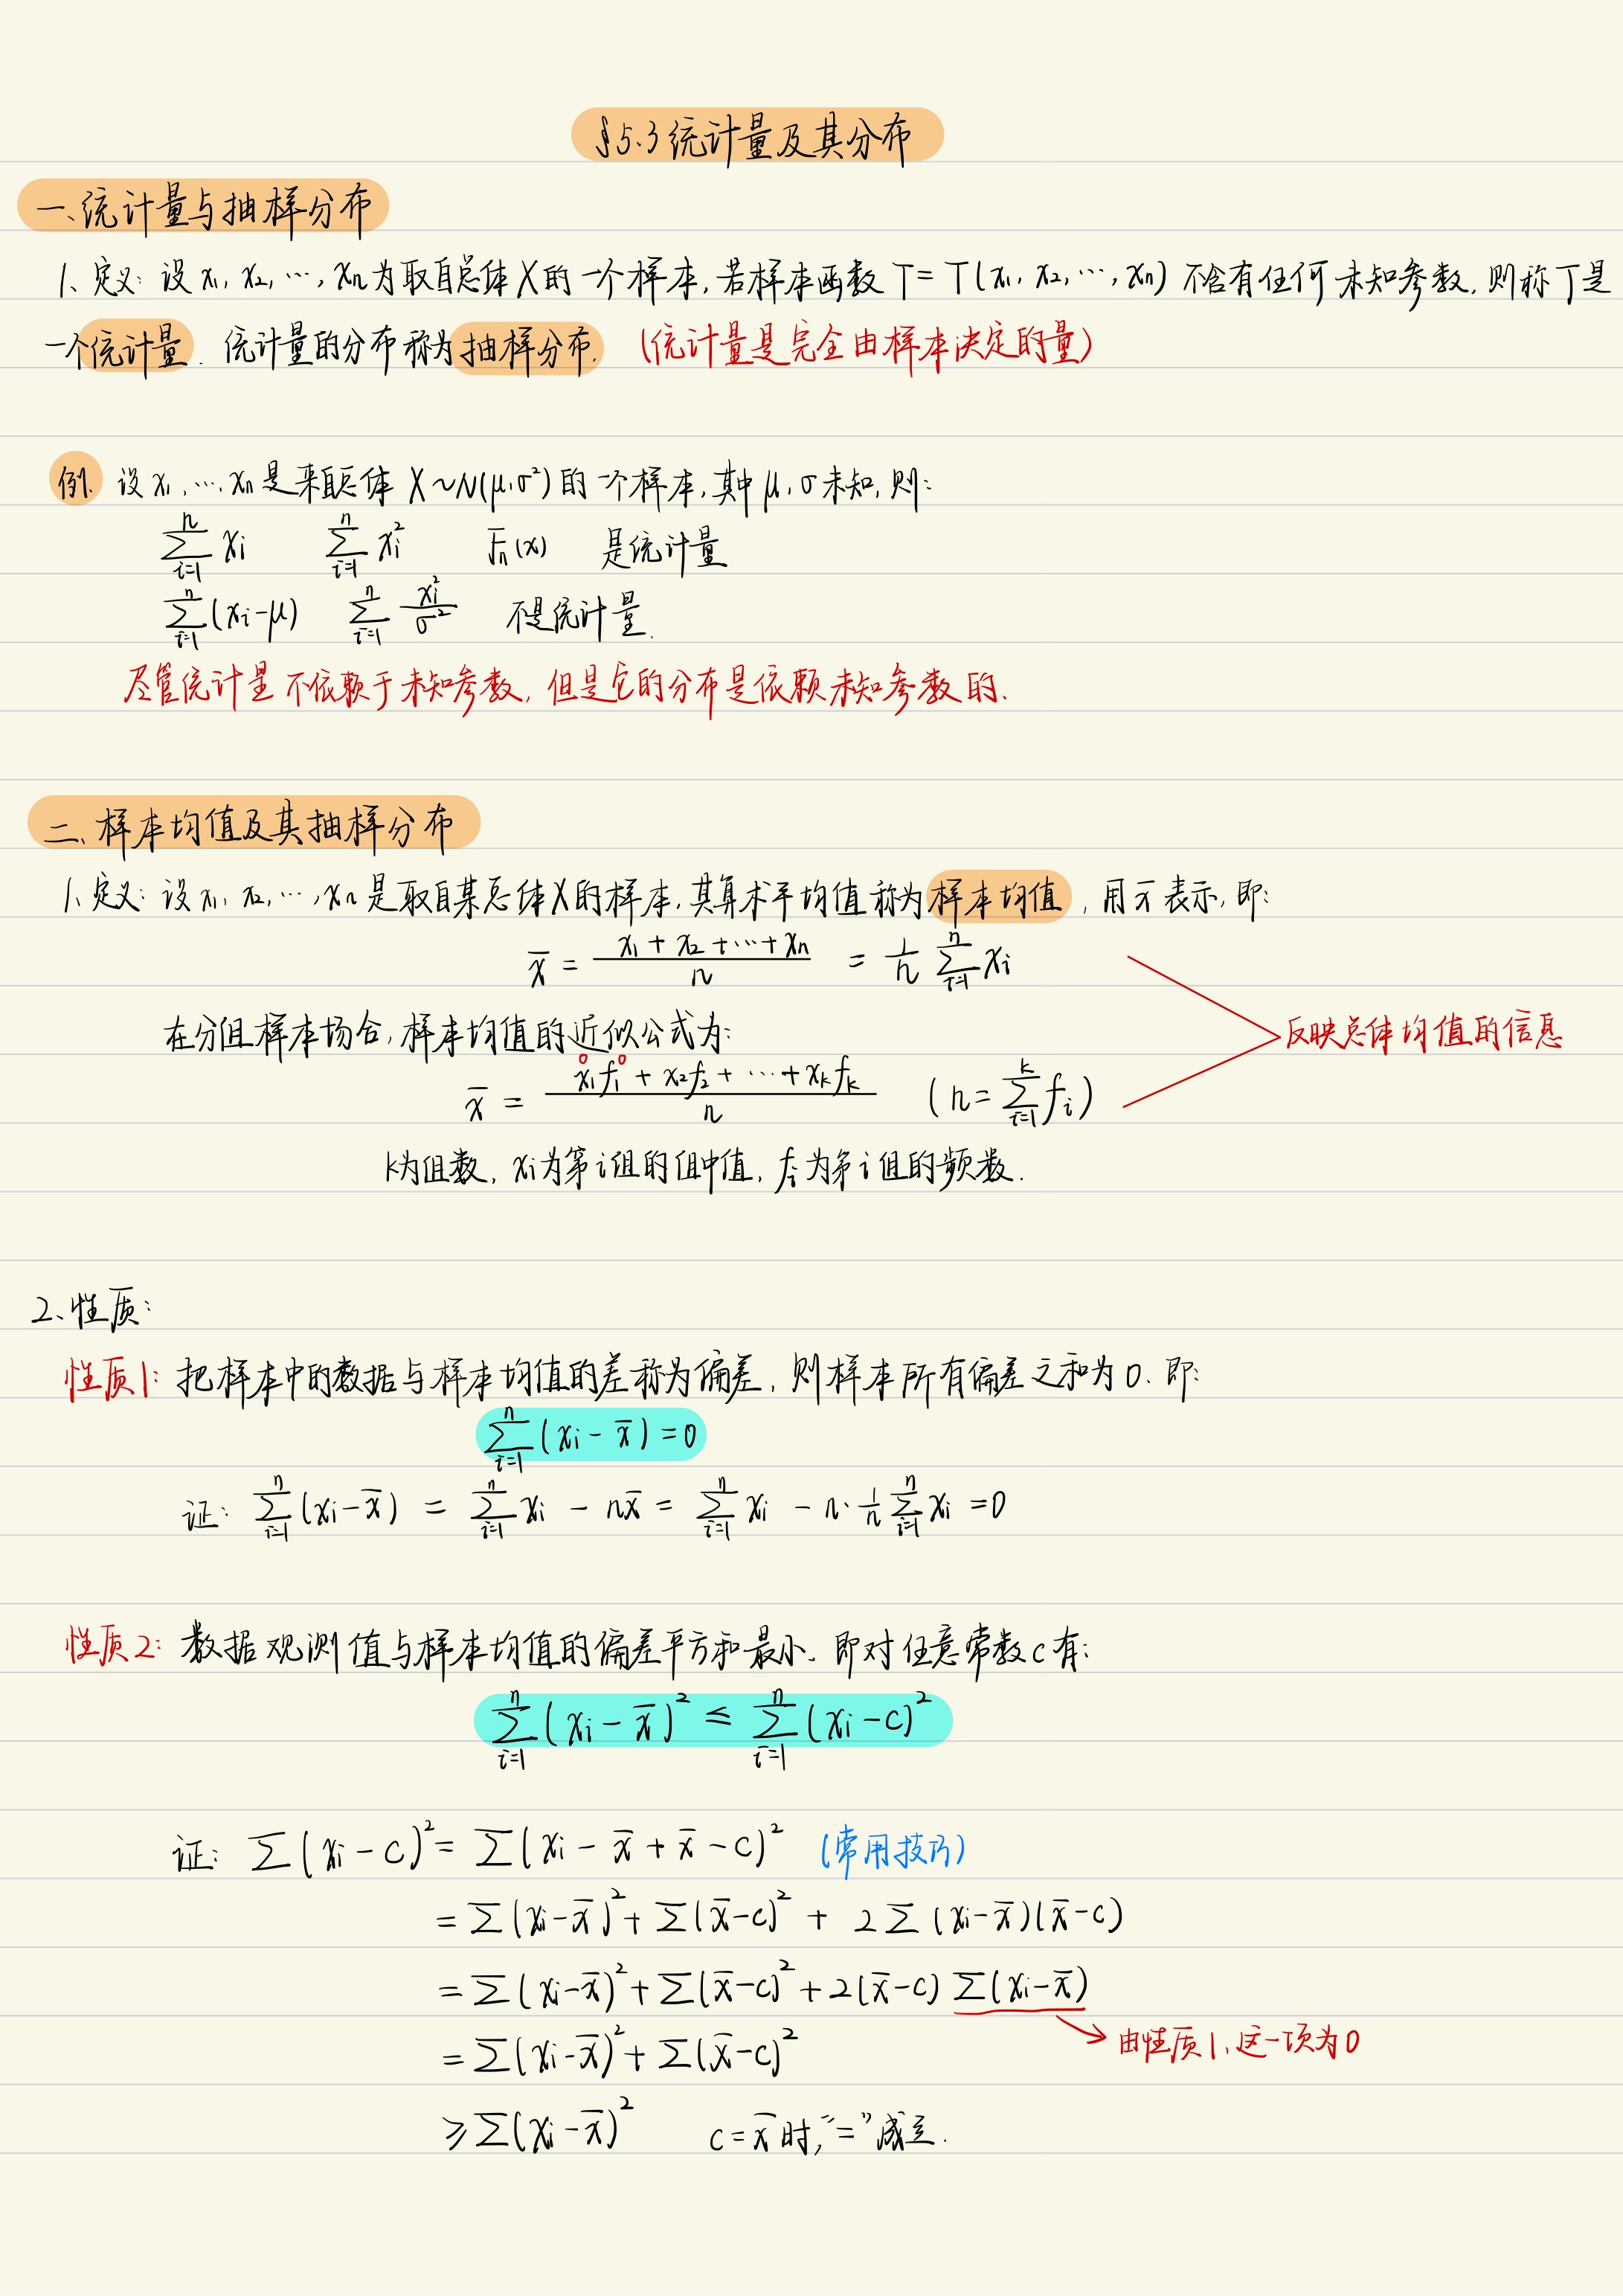 §5.3 统计量及其分布
一、统计量与抽样分布
1、定义: 设 x₁, x₂, ⋯, xₙ 为取自总体 X 的一个样本, 若样本函数 T = T(x₁, x₂, ⋯, xₙ) 不含有任何未知参数, 则称 T 是
一个统计量. 统计量的分布称为抽样分布. (统计量是完全由样本决定的量)
例. 设 x₁, ⋯, xₙ 是来自总体 X ~ N(μ, σ²) 的一个样本, 其中 μ, σ 未知, 则:
∑ᵢ₌₁ⁿ xᵢ  ∑ᵢ₌₁ⁿ xᵢ²  Fₙ(x)  是统计量
∑ᵢ₌₁ⁿ (xᵢ-μ)  ∑ᵢ₌₁ⁿ xᵢ²/σ²  不是统计量.
尽管统计量不依赖于未知参数, 但是它的分布是依赖未知参数的.
二、样本均值及其抽样分布
1、定义: 设 x₁, x₂, ⋯, xₙ 是取自某总体 X 的样本, 其算术平均值称为样本均值, 用 x̄ 表示, 即:
x̄ = (x₁ + x₂ + ⋯ + xₙ)/n = 1/n ∑ᵢ₌₁ⁿ xᵢ
在分组样本场合, 样本均值的近似公式为:
反映总体均值的信息
x̄ = (x₁f₁ + x₂f₂ + ⋯ + xₖfₖ)/n  (n = ∑ᵢ₌₁ᵏ fᵢ)
k为组数, xᵢ为第i组的组中值, fᵢ为第i组的频数.
2、性质:
性质1: 把样本中的数据与样本均值的差称为偏差, 则样本所有偏差之和为0. 即:
∑ᵢ₌₁ⁿ (xᵢ - x̄) = 0
证: ∑ᵢ₌₁ⁿ (xᵢ - x̄) = ∑ᵢ₌₁ⁿ xᵢ - nx̄ = ∑ᵢ₌₁ⁿ xᵢ - n· 1/n ∑ᵢ₌₁ⁿ xᵢ = 0
性质2: 数据观测值与样本均值的偏差平方和最小. 即对任意常数 c 有:
∑ᵢ₌₁ⁿ (xᵢ - x̄)² ≤ ∑ᵢ₌₁ⁿ (xᵢ - c)²
证: ∑(xᵢ - c)² = ∑(xᵢ - x̄ + x̄ - c)² (常用技巧)
= ∑(xᵢ - x̄)² + ∑(x̄ - c)² + 2∑(xᵢ - x̄)(x̄ - c)
= ∑(xᵢ - x̄)² + ∑(x̄ - c)² + 2(x̄ - c)∑(xᵢ - x̄)
由性质1, 这一项为0
= ∑(xᵢ - x̄)² + ∑(x̄ - c)²
≥ ∑(xᵢ - x̄)²  c = x̄ 时, "=" 成立.